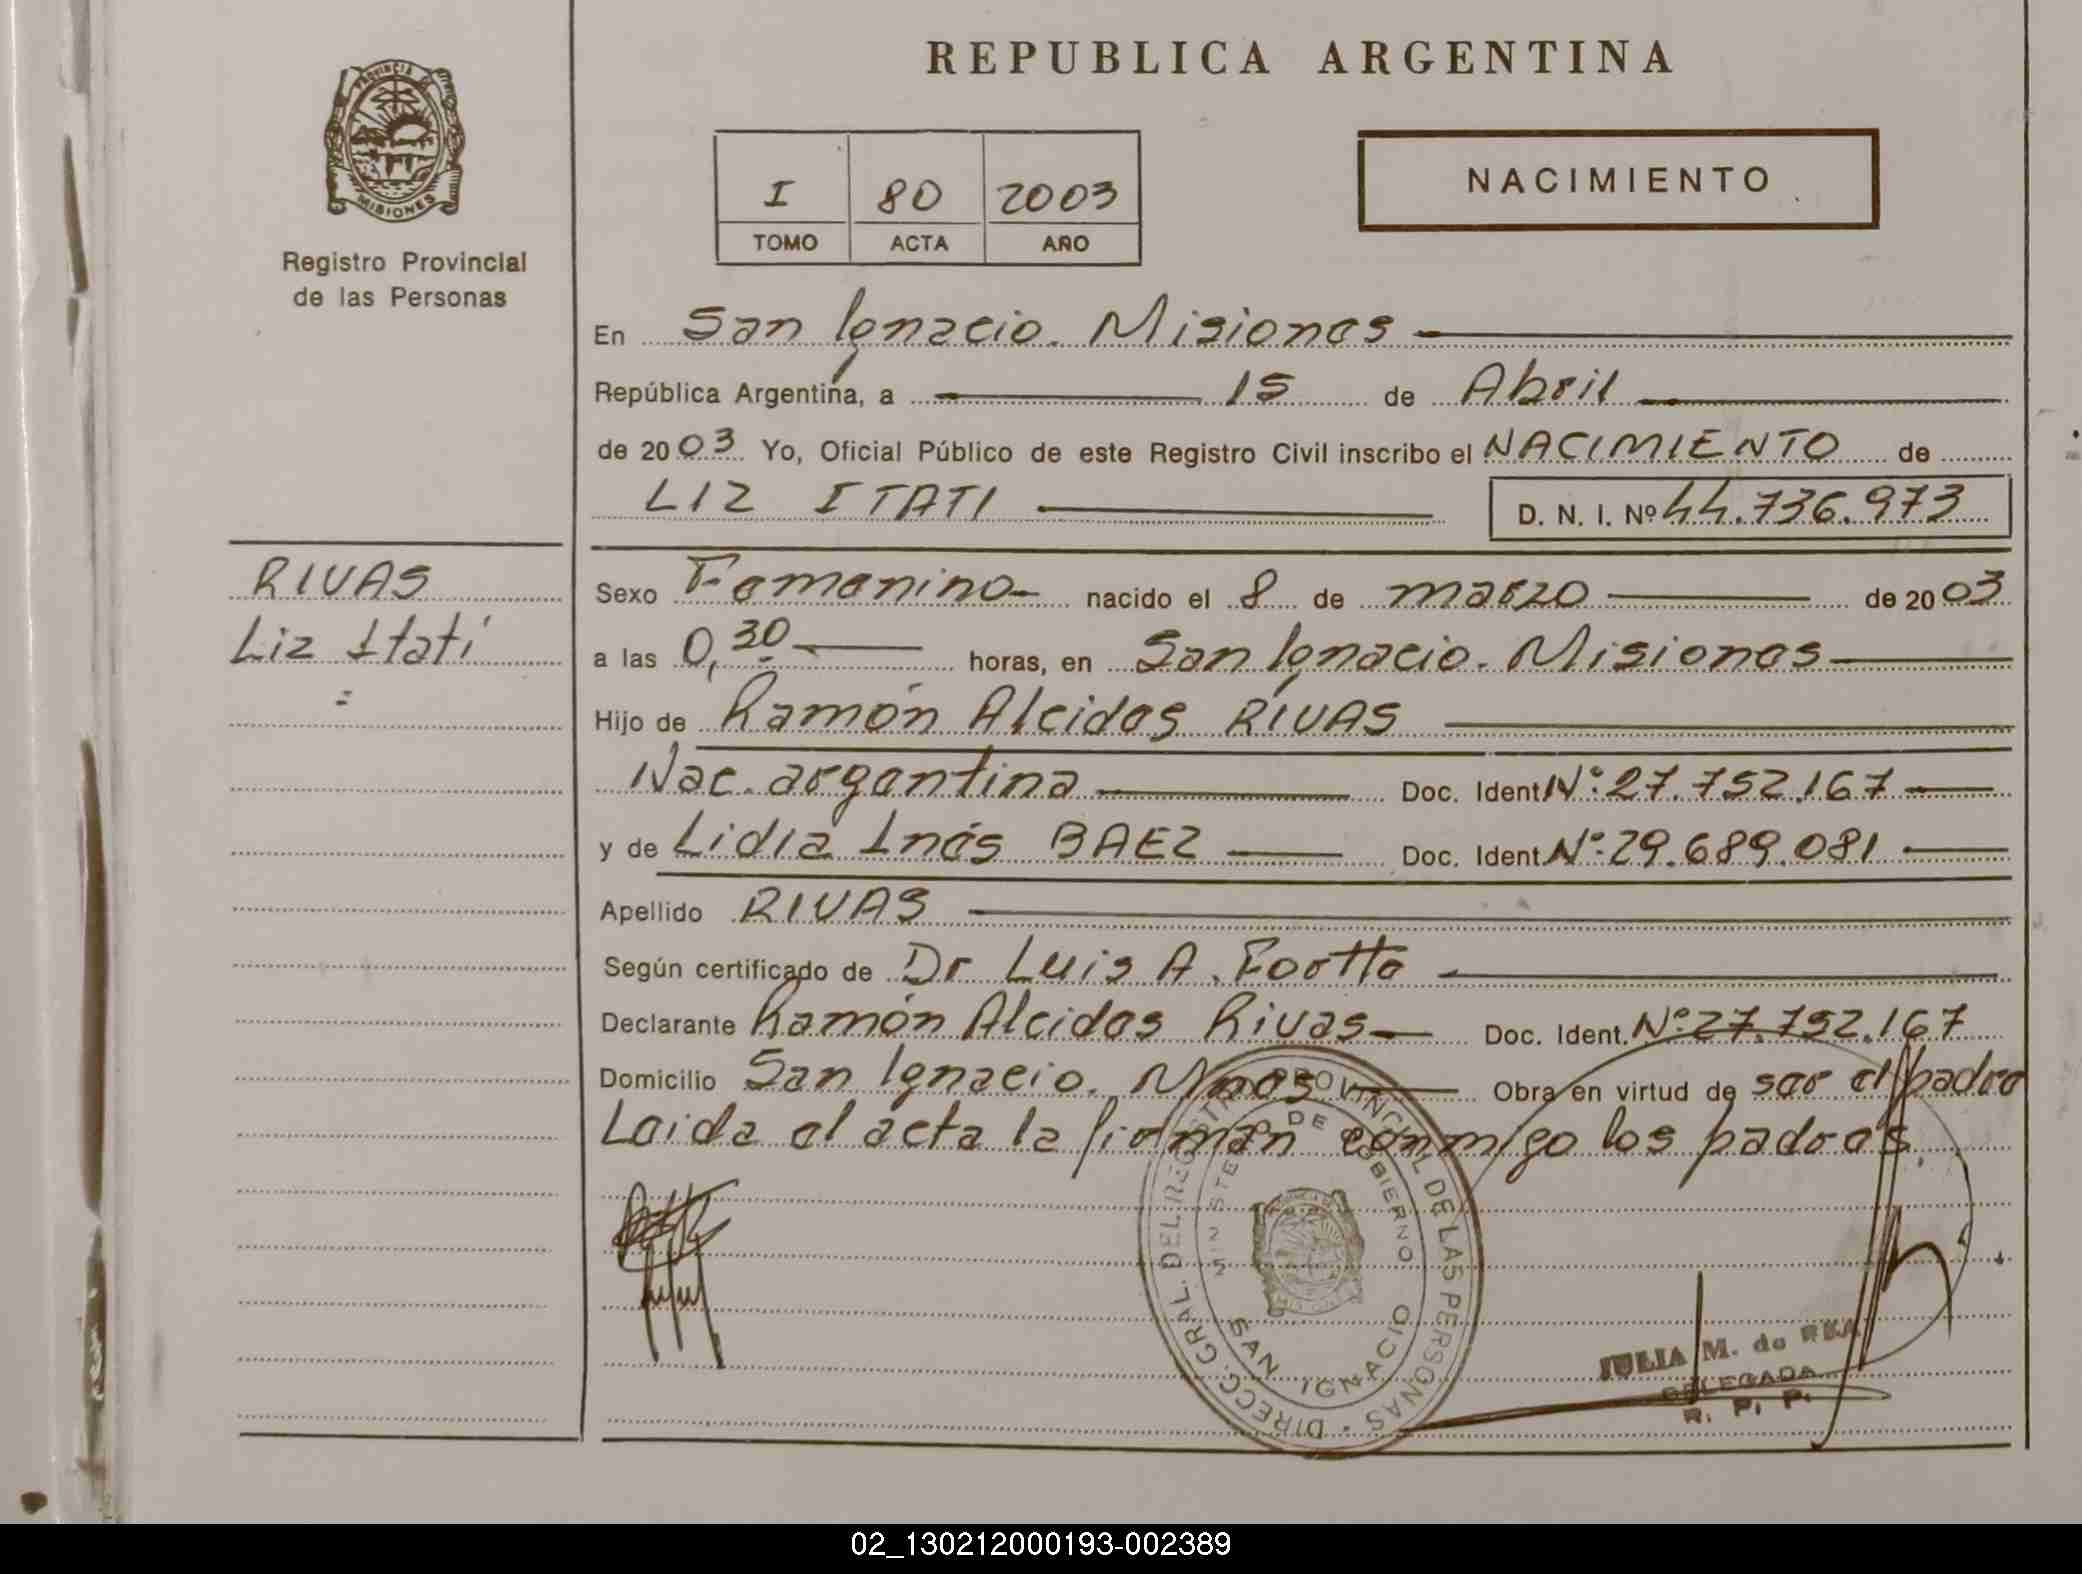 REPUBLICA ARGENTINA
PROVINCIA DE
MISIONES
Registro Provincial
de las Personas
I 80 2003
TOMO ACTA AÑO
NACIMIENTO
En San Ignacio. Misiones
República Argentina, a 15 de Abril
de 2003 Yo, Oficial Público de este Registro Civil inscribo el NACIMIENTO de
LIZ ITATI D. N. I. Nº 44.736.973
RIVAS
Liz Itatí
Sexo Femenino nacido el 8 de marzo de 2003
a las 0,30 horas, en San Ignacio. Misiones
Hijo de Ramón Alcides RIVAS
Nac. argentina Doc. Ident. Nº: 27.752.167
y de Lidia Inés BAEZ Doc. Ident. Nº: 29.689.081
Apellido RIVAS
Según certificado de Dr Luis A.
Declarante Ramón Alcides Rivas Doc. Ident. Nº: 27.752.167
Domicilio San Ignacio. Mnes Obra en virtud de ser el padre
Leida el acta la firman conmigo los padres.
DIRECC. GRAL. DEL REGISTRO PROVINCIAL DE LAS PERSONAS
MINISTERIO DE GOBIERNO
SAN IGNACIO
JULIA M. de REA
DELEGADA
R. P. P.
02_130212000193-002389